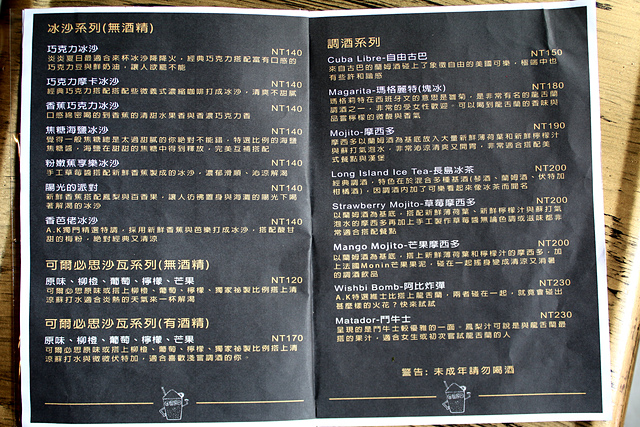 冰沙系列(無酒精)
巧克力冰沙 NT140
炎炎夏日最適合來杯冰沙降降火，經典巧克力搭配富有口感的
巧克力豆與鮮奶油，讓人欲罷不能
巧克力摩卡冰沙 NT140
經典巧克力搭配搭配些微義式濃縮咖啡打成冰沙，清爽不甜膩
香蕉巧克力冰沙 NT140
口感綿密喝的到香蕉的清甜水果香與香濃巧克力香
焦糖海鹽冰沙 NT140
覺得一般焦糖總是太過甜膩的你絕對不能錯，特選比例的海鹽
焦糖醬，海鹽在甜甜的焦糖中得到釋放，完美互補搭配
粉嫩蕉享樂冰沙 NT140
手工草莓醬搭配新鮮香蕉製成的冰沙，濃郁滑順、沁涼解渴
陽光的派對 NT140
新鮮香蕉搭配鳳梨與百香果，讓人彷彿置身與海灘的陽光下喝
著解渴的冰沙
香芭佬冰沙 NT140
A.K獨門精選特調，採用新鮮香蕉與芭樂打成冰沙，搭配酸甘
甜的梅粉，絕對經典又清涼
可爾必思沙瓦系列(無酒精)
原味、柳橙、葡萄、檸檬、芒果 NT120
可爾必思原味或搭上柳橙、葡萄、檸檬、獨家祕製比例搭上清
涼蘇打水適合炎熱的天氣來一杯解渴
可爾必思沙瓦系列(有酒精)
原味、柳橙、葡萄、檸檬、芒果 NT170
可爾必思原味或搭上柳橙、葡萄、檸檬、獨家祕製比例搭上清
涼蘇打水與微微伏特加，適合喜歡淺嘗調酒的你。
調酒系列
Cuba Libre-自由古巴 NT150
來自古巴的蘭姆酒碰上了象徵自由的美國可樂，極端中也
有些許和諧感
Magarita-瑪格麗特(塊冰) NT180
瑪格莉特在西班牙文的意思是雛菊，是非常有名的龍舌蘭
調酒之一，非常的受女性歡迎，可以喝到龍舌蘭的香味與
品嘗檸檬的微酸與香氣
Mojito-摩西多 NT190
摩西多以蘭姆酒為基底放入大量新鮮薄荷葉和新鮮檸檬汁
與蘇打氣泡水，非常沁涼清爽又開胃，非常適合搭配美
式餐點與漢堡
Long Island Ice Tea-長島冰茶 NT200
經典調酒，特色在於混合多種基酒(琴酒、蘭姆酒、伏特加
柑橘酒)，因調酒內加了可樂看起來像冰茶而聞名
Strawberry Mojito-草莓摩西多 NT200
以蘭姆酒為基底，搭配新鮮薄荷葉、新鮮檸檬汁與蘇打氣
泡水的摩西多再加上手工製作草莓醬無論色調或滋味都非
常適合搭配餐點
Mango Mojito-芒果摩西多 NT200
以蘭姆酒為基底，搭上新鮮薄荷葉和檸檬汁的摩西多，加
上法國Monin芒果果泥，碰在一起搖身變成清涼又消暑
的調酒飲品
Wishbi Bomb-阿比炸彈 NT230
A.K特選維士比搭上龍舌蘭，兩者碰在一起，就竟會碰出
甚麼樣的火花？快來試試
Matador-鬥牛士 NT230
呈現的是鬥牛士較優雅的一面。鳳梨汁可說是與龍舌蘭最
搭的果汁，適合女生或初次嘗試龍舌蘭的人
警告：未成年請勿喝酒